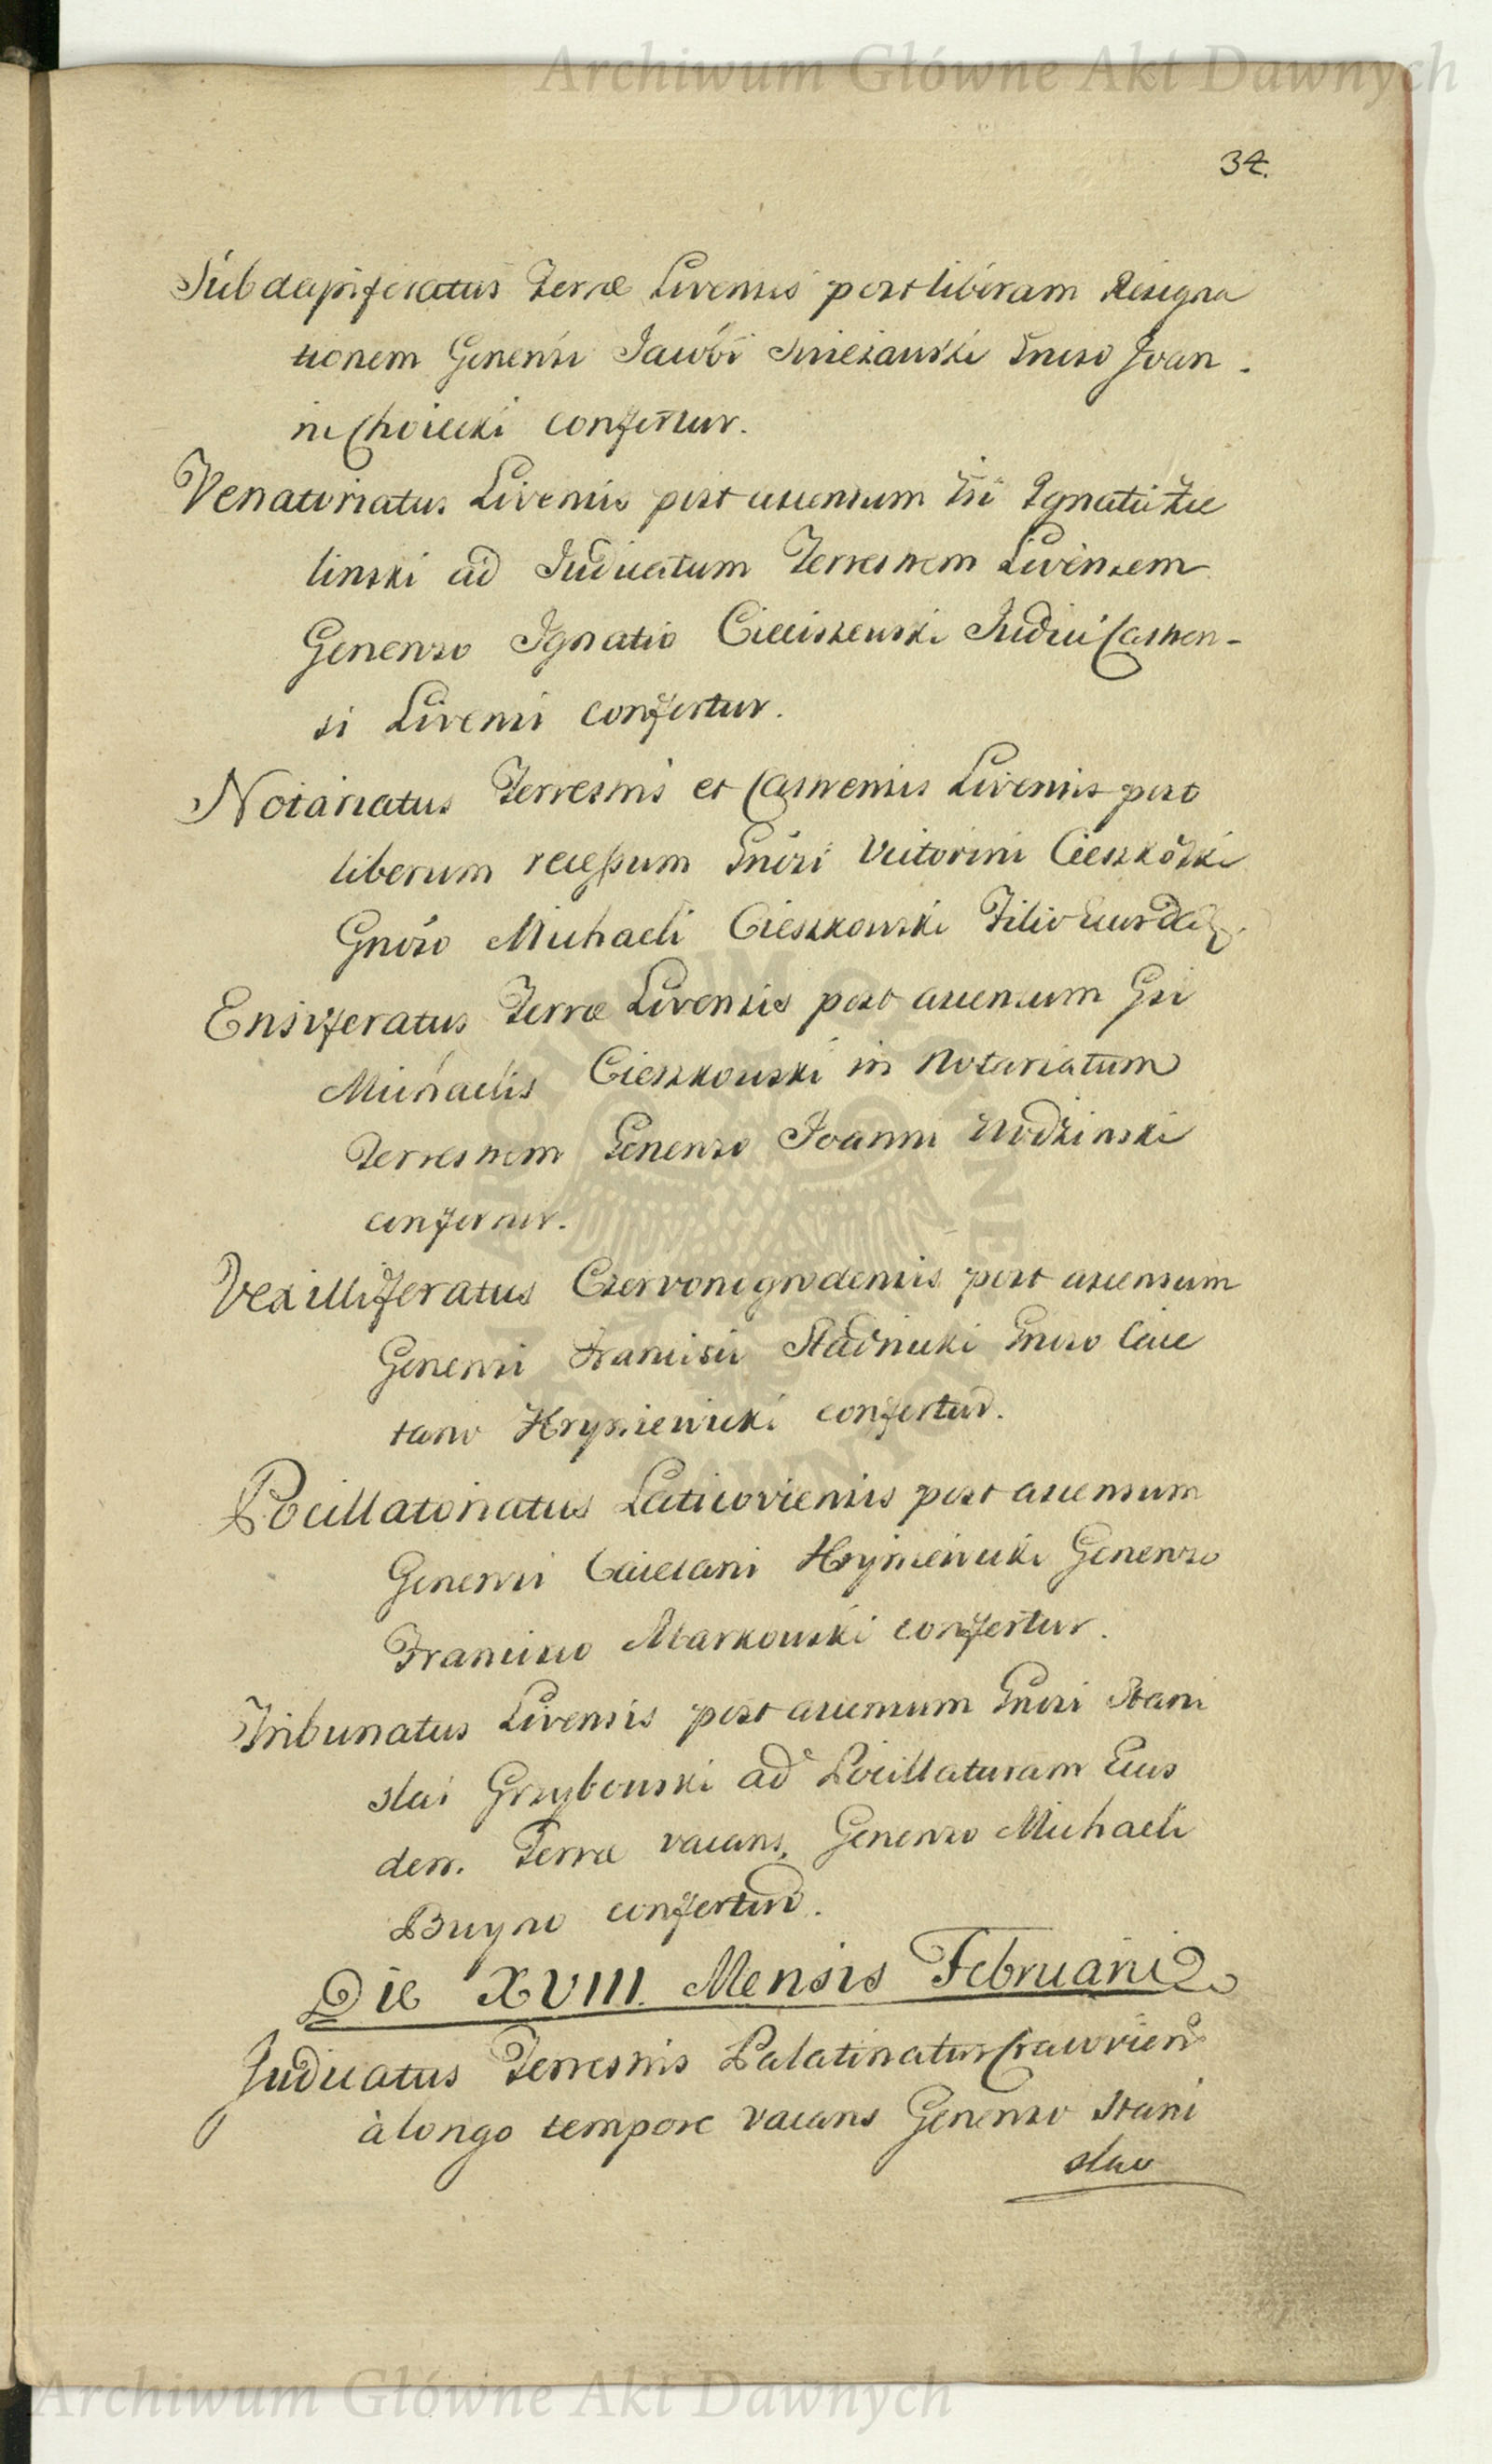 Archiwum Główne Akt Dawnych
34.
Subdapiferatus Terræ Livensis post liberam Resigna
tionem Generosi Jacobi Gnoso Joan-
ni Choiecki confertur.
Venatoriatus Livensis post ascensum Gsi Ignatii Zie
linski ad Judicatum Terrestrem Livensem
Generoso Ignatio Cieciszewski Judici Castren-
si Livensi confertur.
Notariatus Terrestris et Castrensis Livensis post
liberum recessum Gnosi Victorini Cieszkowski
Gnoso Michaeli Cieszkowski Filio
Ensiferatus Terræ Livensis post ascensum Gsi
Michaelis Cieszkowski in Notariatum
Terrestrem Generoso Joanni Wodzinski
confertur.
Vexilliferatus Czervonigrodensis post ascensum
Generosi Francisci Stadnicki Gnoso Caie
tano Hryniewicki confertur.
Pocillatoriatus Laticoviensis post ascensum
Generosi Caietani Hryniewicki Generoso
Francisco Markowski confertur.
Tribunatus Livensis post ascensum Gnosi Stani
slai Grzybowski ad Pocillaturam Eius
dem Terræ vacans, Generoso Michaeli
Buyno confertur.
Die XVIII. Mensis Februarii
Judicatus Terrestris Palatinatus Cracovien
à longo tempore vacans Generoso Stani
slao
Archiwum Główne Akt Dawnych